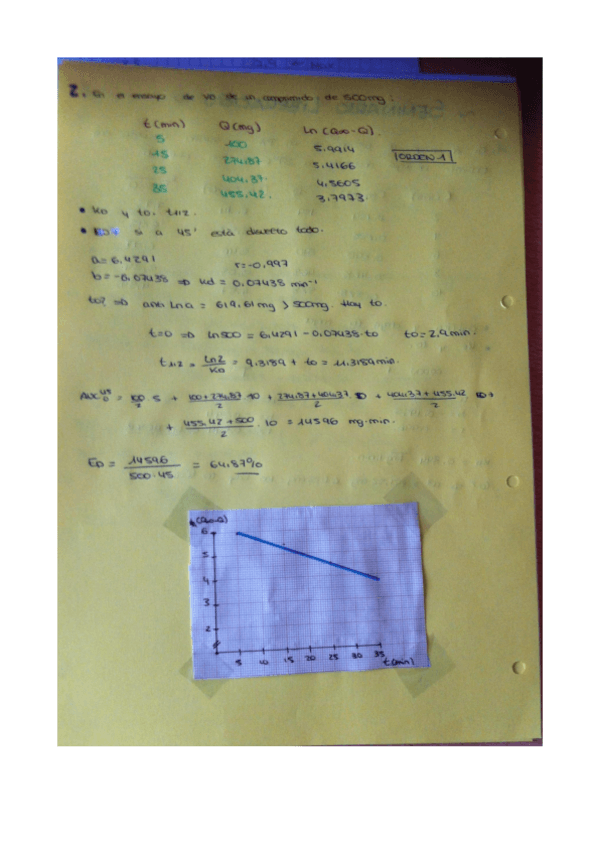 2. En el ensayo de VD de un comprimido de 500mg:
t(min) Q(mg) Ln(Q∞-Q).
5 100 5.9914
15 274.87 5.4166 ORDEN 1
25 404.37 4.5605
35 455.42 3.7973
• KD y to, t1/2.
• si a 45' está disuelto todo.
a=6.4291 r=-0.997
b=-0.07438 => Kd = 0.07438 min⁻¹
to? => anti Ln a = 619.61mg > 500mg. Hay to.
t=0 => ln500 = 6.4291 - 0.07438·to to= 2.9min.
t1/2 = Ln2/KD = 9.3189 + to = 11.3189min.
= 100/2 5 + 100+274.87/2 10 + 274.87+404.37/2 10 + 404.37+455.42/2 10+
+ 455.42+500/2 · 10 = 14596 mg·min.
ED = 14596/500·45 = 64.87%
(Q∞-Q)
6
5
4
3
2
5 10 15 20 25 30 35
t(min)